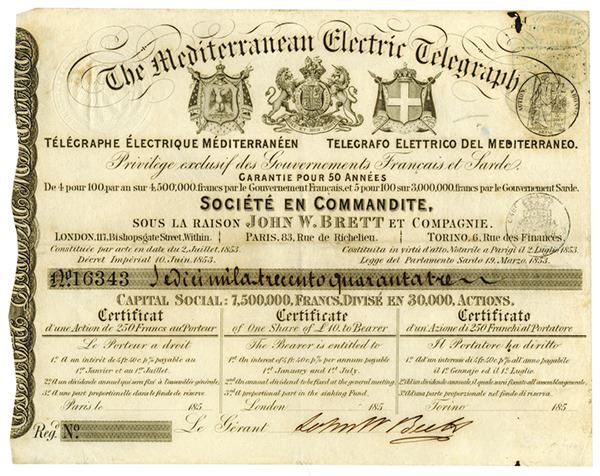 The Mediterranean Electric Telegraph
TÉLÉGRAPHE ÉLECTRIQUE MÉDITERRANÉEN TELEGRAFO ELETTRICO DEL MEDITERRANEO.
Privilège exclusif des Gouvernements Français et Sarde.
GARANTIE POUR 50 ANNÉES
De 4 pour 100 par an sur 4,500,000 francs par le Gouvernement Français, et 5 pour 100 sur 3,000,000 francs par le Gouvernement Sarde.
SOCIÉTÉ EN COMMANDITE,
SOUS LA RAISON JOHN W. BRETT ET COMPAGNIE.
LONDON. 117, Bishopsgate Street, Within. PARIS, 83, Rue de Richelieu. TORINO, 6, Rue des Finances.
Constituée par acte en date du 2. Juillet, 1853. Costituita in virtù d'atto Notarile a Parigi il 2 Luglio 1853.
Décret Impérial 10. Juin, 1853. Legge del Parlamento Sardo 19. Marzo, 1853.
No. 16343 Sedicimilatrecentoquarantatre
CAPITAL SOCIAL: 7,500,000. FRANCS, DIVISÉ EN 30,000. ACTIONS.
Certificat
d'une Action de 250 Francs au Porteur
Le Porteur a droit
1º A un intérêt de 4 fr. 40 c. p% par an payable
le 1er Janvier et au 1er Juillet.
2º A un dividend annuel qui sera fixé à l'assemblée générale,
3º A une part proportionelle dans le fonds de réserve.
Paris le 185
Certificate
of One Share of £10. to Bearer
The Bearer is entitled to
1st An interest of 4 fr. 40 c. p% per annum payable
1st January and 1st July.
2nd An annual dividend to be fixed at the general meeting.
3rd A proportional part in the sinking Fund.
London 185
Certificato
d'un Azione di 250 Franchi al Portatore
Il Portatore ha diritto
1º Ad un interesse di 4 fr. 40 c. p% all'anno pagabile
il 1º Gennajo ed il 1º Luglio.
2º Ad un dividendo annuale, il quale sarà fissato all'assemblea generale,
3º Ad una parte proporzionale nel fondo di riserva.
Torino 185
Regd. No. Le Gérant John W Brett